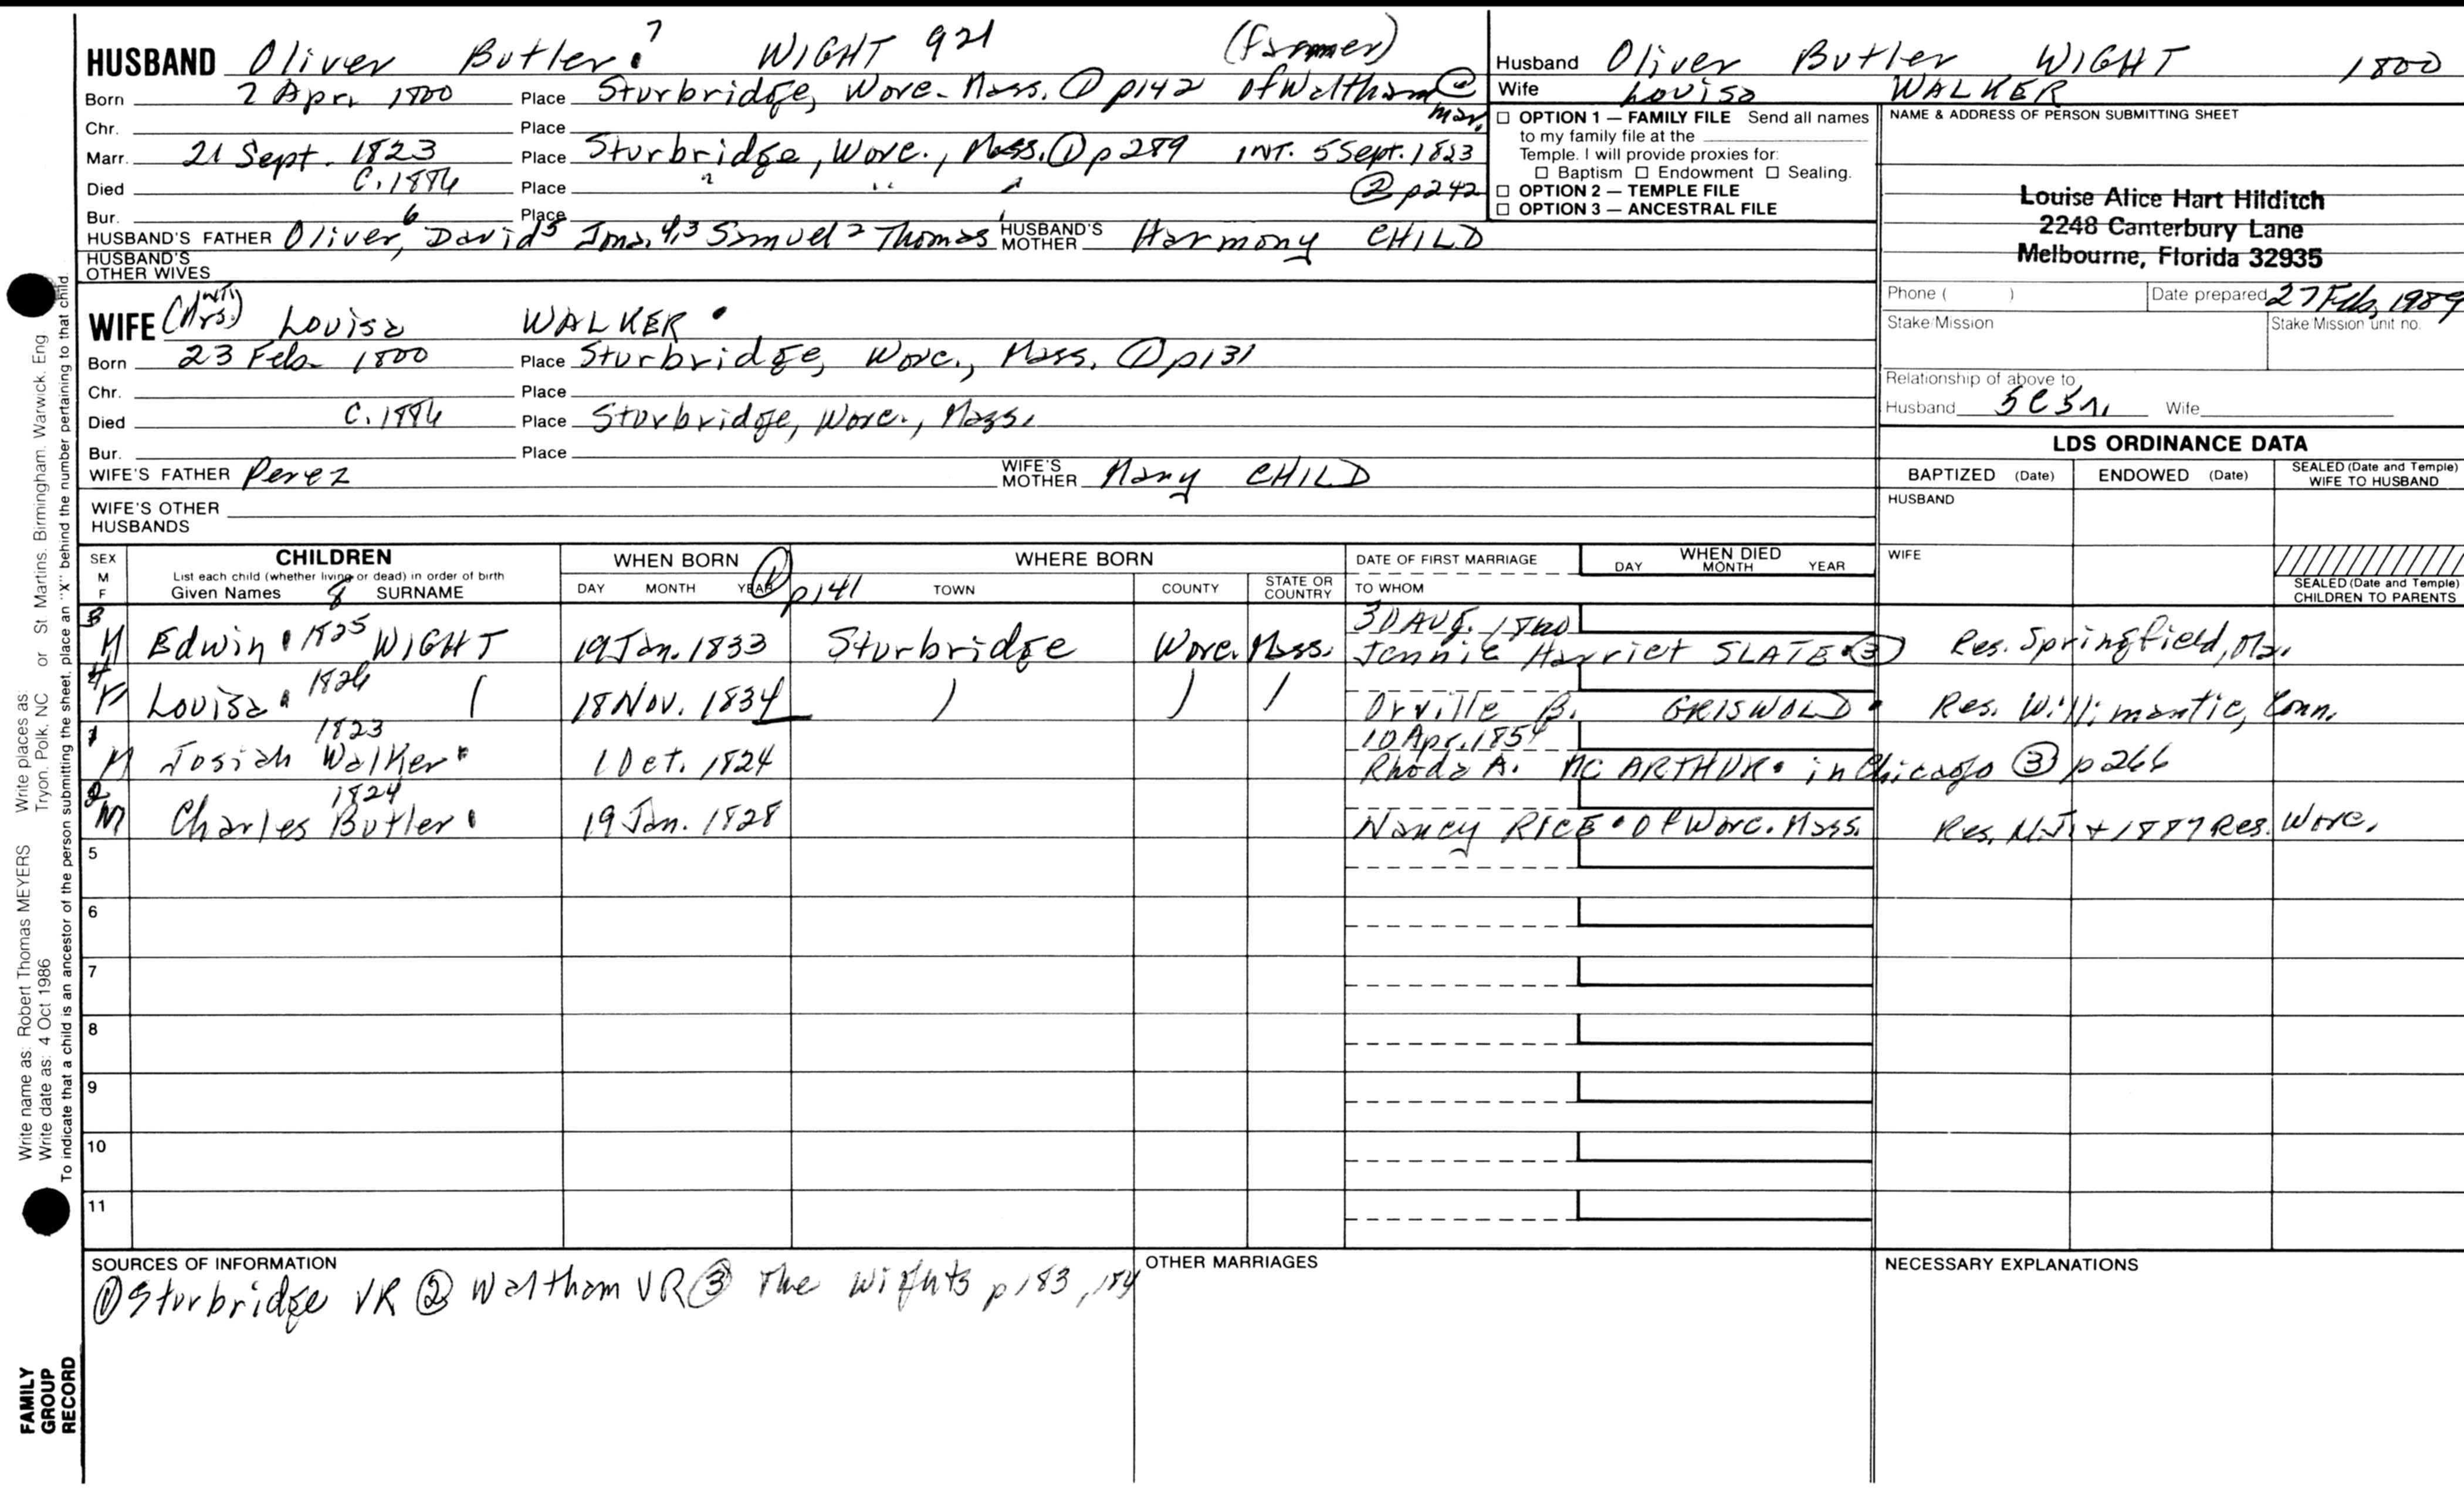 HUSBAND Oliver Butler. 7 WIGHT 921 (farmer)
Born 2 Apr. 1800 Place Sturbridge, Worc. Mass. ① p142 of Waltham ② mar.
Chr. Place
Marr. 21 Sept. 1823 Place Sturbridge, Worc., Mass. ① p289 INT. 5 Sept. 1823
Died C. 1886 Place " " " ② p242
Bur. Place
HUSBAND'S FATHER Oliver 6, David 5 Jona. 4,3 Samuel 2 Thomas 1 HUSBAND'S MOTHER Harmony CHILD
HUSBAND'S OTHER WIVES
WIFE (Mrs.) Louisa WALKER
Born 23 Feb. 1800 Place Sturbridge, Worc., Mass. ① p131
Chr. Place
Died C. 1886 Place Sturbridge, Worc., Mass.
Bur. Place
WIFE'S FATHER Perez WIFE'S MOTHER Mary CHILD
WIFE'S OTHER HUSBANDS
Husband Oliver Butler WIGHT 1800
Wife Louisa WALKER
☐ OPTION 1 — FAMILY FILE Send all names
to my family file at the
Temple. I will provide proxies for:
☐ Baptism ☐ Endowment ☐ Sealing.
☐ OPTION 2 — TEMPLE FILE
☐ OPTION 3 — ANCESTRAL FILE
NAME & ADDRESS OF PERSON SUBMITTING SHEET
Louise Alice Hart Hilditch
2248 Canterbury Lane
Melbourne, Florida 32935
Phone ( ) Date prepared 27 Feb. 1989
Stake/Mission Stake Mission unit no.
Relationship of above to
Husband 5C5r. Wife
LDS ORDINANCE DATA
BAPTIZED (Date) ENDOWED (Date) SEALED (Date and Temple) WIFE TO HUSBAND
HUSBAND
WIFE
SEALED (Date and Temple) CHILDREN TO PARENTS
SEX M F CHILDREN WHEN BORN ① p141 WHERE BORN DATE OF FIRST MARRIAGE WHEN DIED
List each child (whether living or dead) in order of birth
Given Names 8 SURNAME DAY MONTH YEAR TOWN COUNTY STATE OR COUNTRY TO WHOM DAY MONTH YEAR
3 M Edwin 1825 WIGHT 19 Jan. 1833 Sturbridge Worc. Mass. 30 Aug. 1860 Jennie Harriet SLATE ③ Res. Springfield, Ma.
4 F Louisa 1826 18 Nov. 1834 Orville B. GRISWOLD Res. Willimantic, Conn.
1 M Josiah Walker 1823 1 Oct. 1824 10 Apr. 1854 Rhoda A. MC ARTHUR in Chicago ③ p266
2 M Charles Butler 1824 19 Jan. 1828 Nancy RICE of Worc. Mass. Res. N.J. + 1887 Res. Worc.
5
6
7
8
9
10
11
SOURCES OF INFORMATION
① Sturbridge VR ② Waltham VR ③ The Wights p183, 184
OTHER MARRIAGES
NECESSARY EXPLANATIONS
Write name as: Robert Thomas MEYERS Write places as: Tryon, Polk, NC or St Martins, Birmingham, Warwick, Eng
Write date as: 4 Oct 1986
To indicate that a child is an ancestor of the person submitting the sheet, place an "X" behind the number pertaining to that child.
FAMILY
GROUP
RECORD